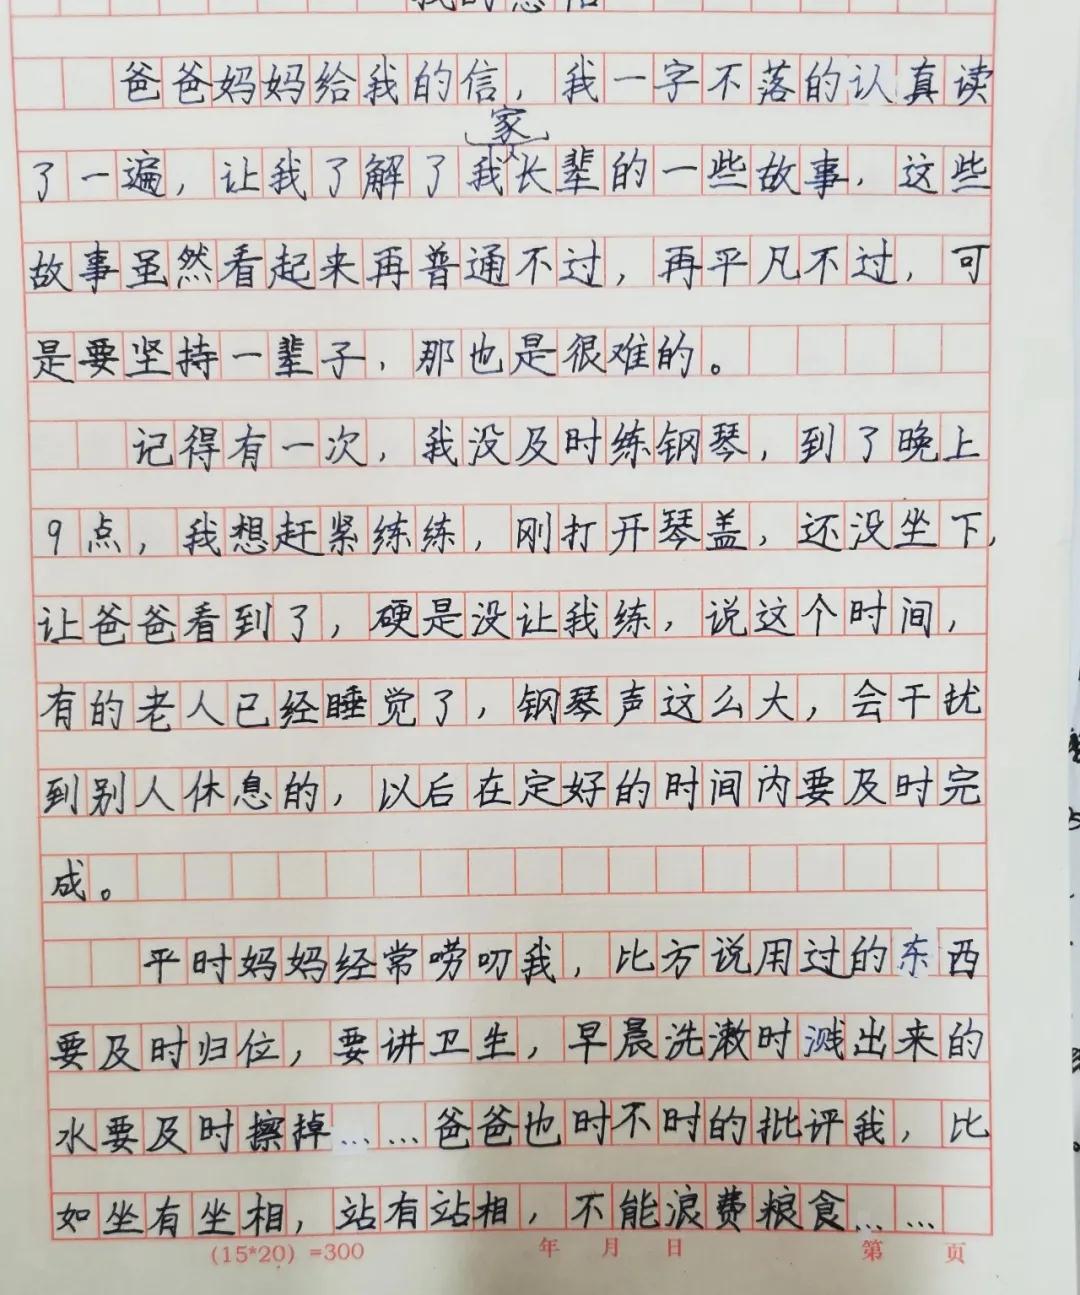 爸爸妈妈给我的信，我一字不落的认真读
家
了一遍，让我了解了我长辈的一些故事，这些
故事虽然看起来再普通不过，再平凡不过，可
是要坚持一辈子，那也是很难的。
记得有一次，我没及时练钢琴，到了晚上
9点，我想赶紧练练，刚打开琴盖，还没坐下，
让爸爸看到了，硬是没让我练，说这个时间，
有的老人已经睡觉了，钢琴声这么大，会干扰
到别人休息的，以后在定好的时间内要及时完
成。
平时妈妈经常唠叨我，比方说用过的东西
要及时归位，要讲卫生，早晨洗漱时溅出来的
水要及时擦掉……爸爸也时不时的批评我，比
如坐有坐相，站有站相，不能浪费粮食……
(15*20) =300 年 月 日 第 页